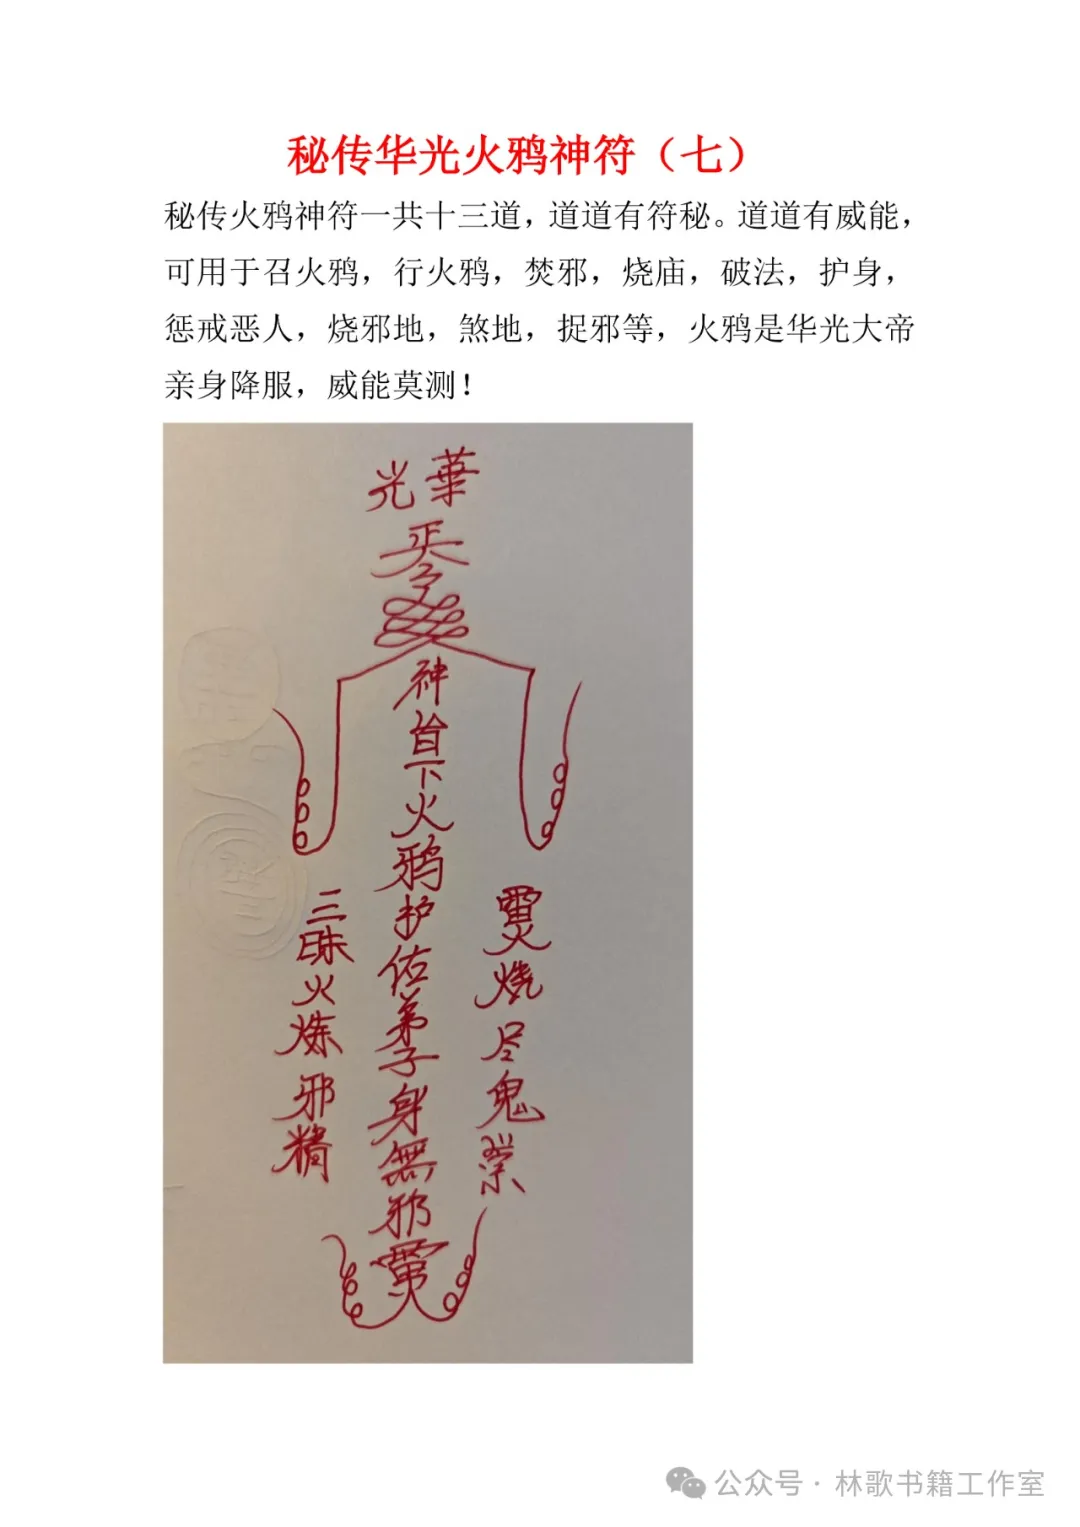 秘传华光火鸦神符（七）
秘传火鸦神符一共十三道，道道有符秘。道道有威能，
可用于召火鸦，行火鸦，焚邪，烧庙，破法，护身，
惩戒恶人，烧邪地，煞地，捉邪等，火鸦是华光大帝
亲身降服，威能莫测！
華光
神旨下火鸦护佑弟子身無邪
烧尽鬼祟
火炼邪精
公众号·林歌书籍工作室